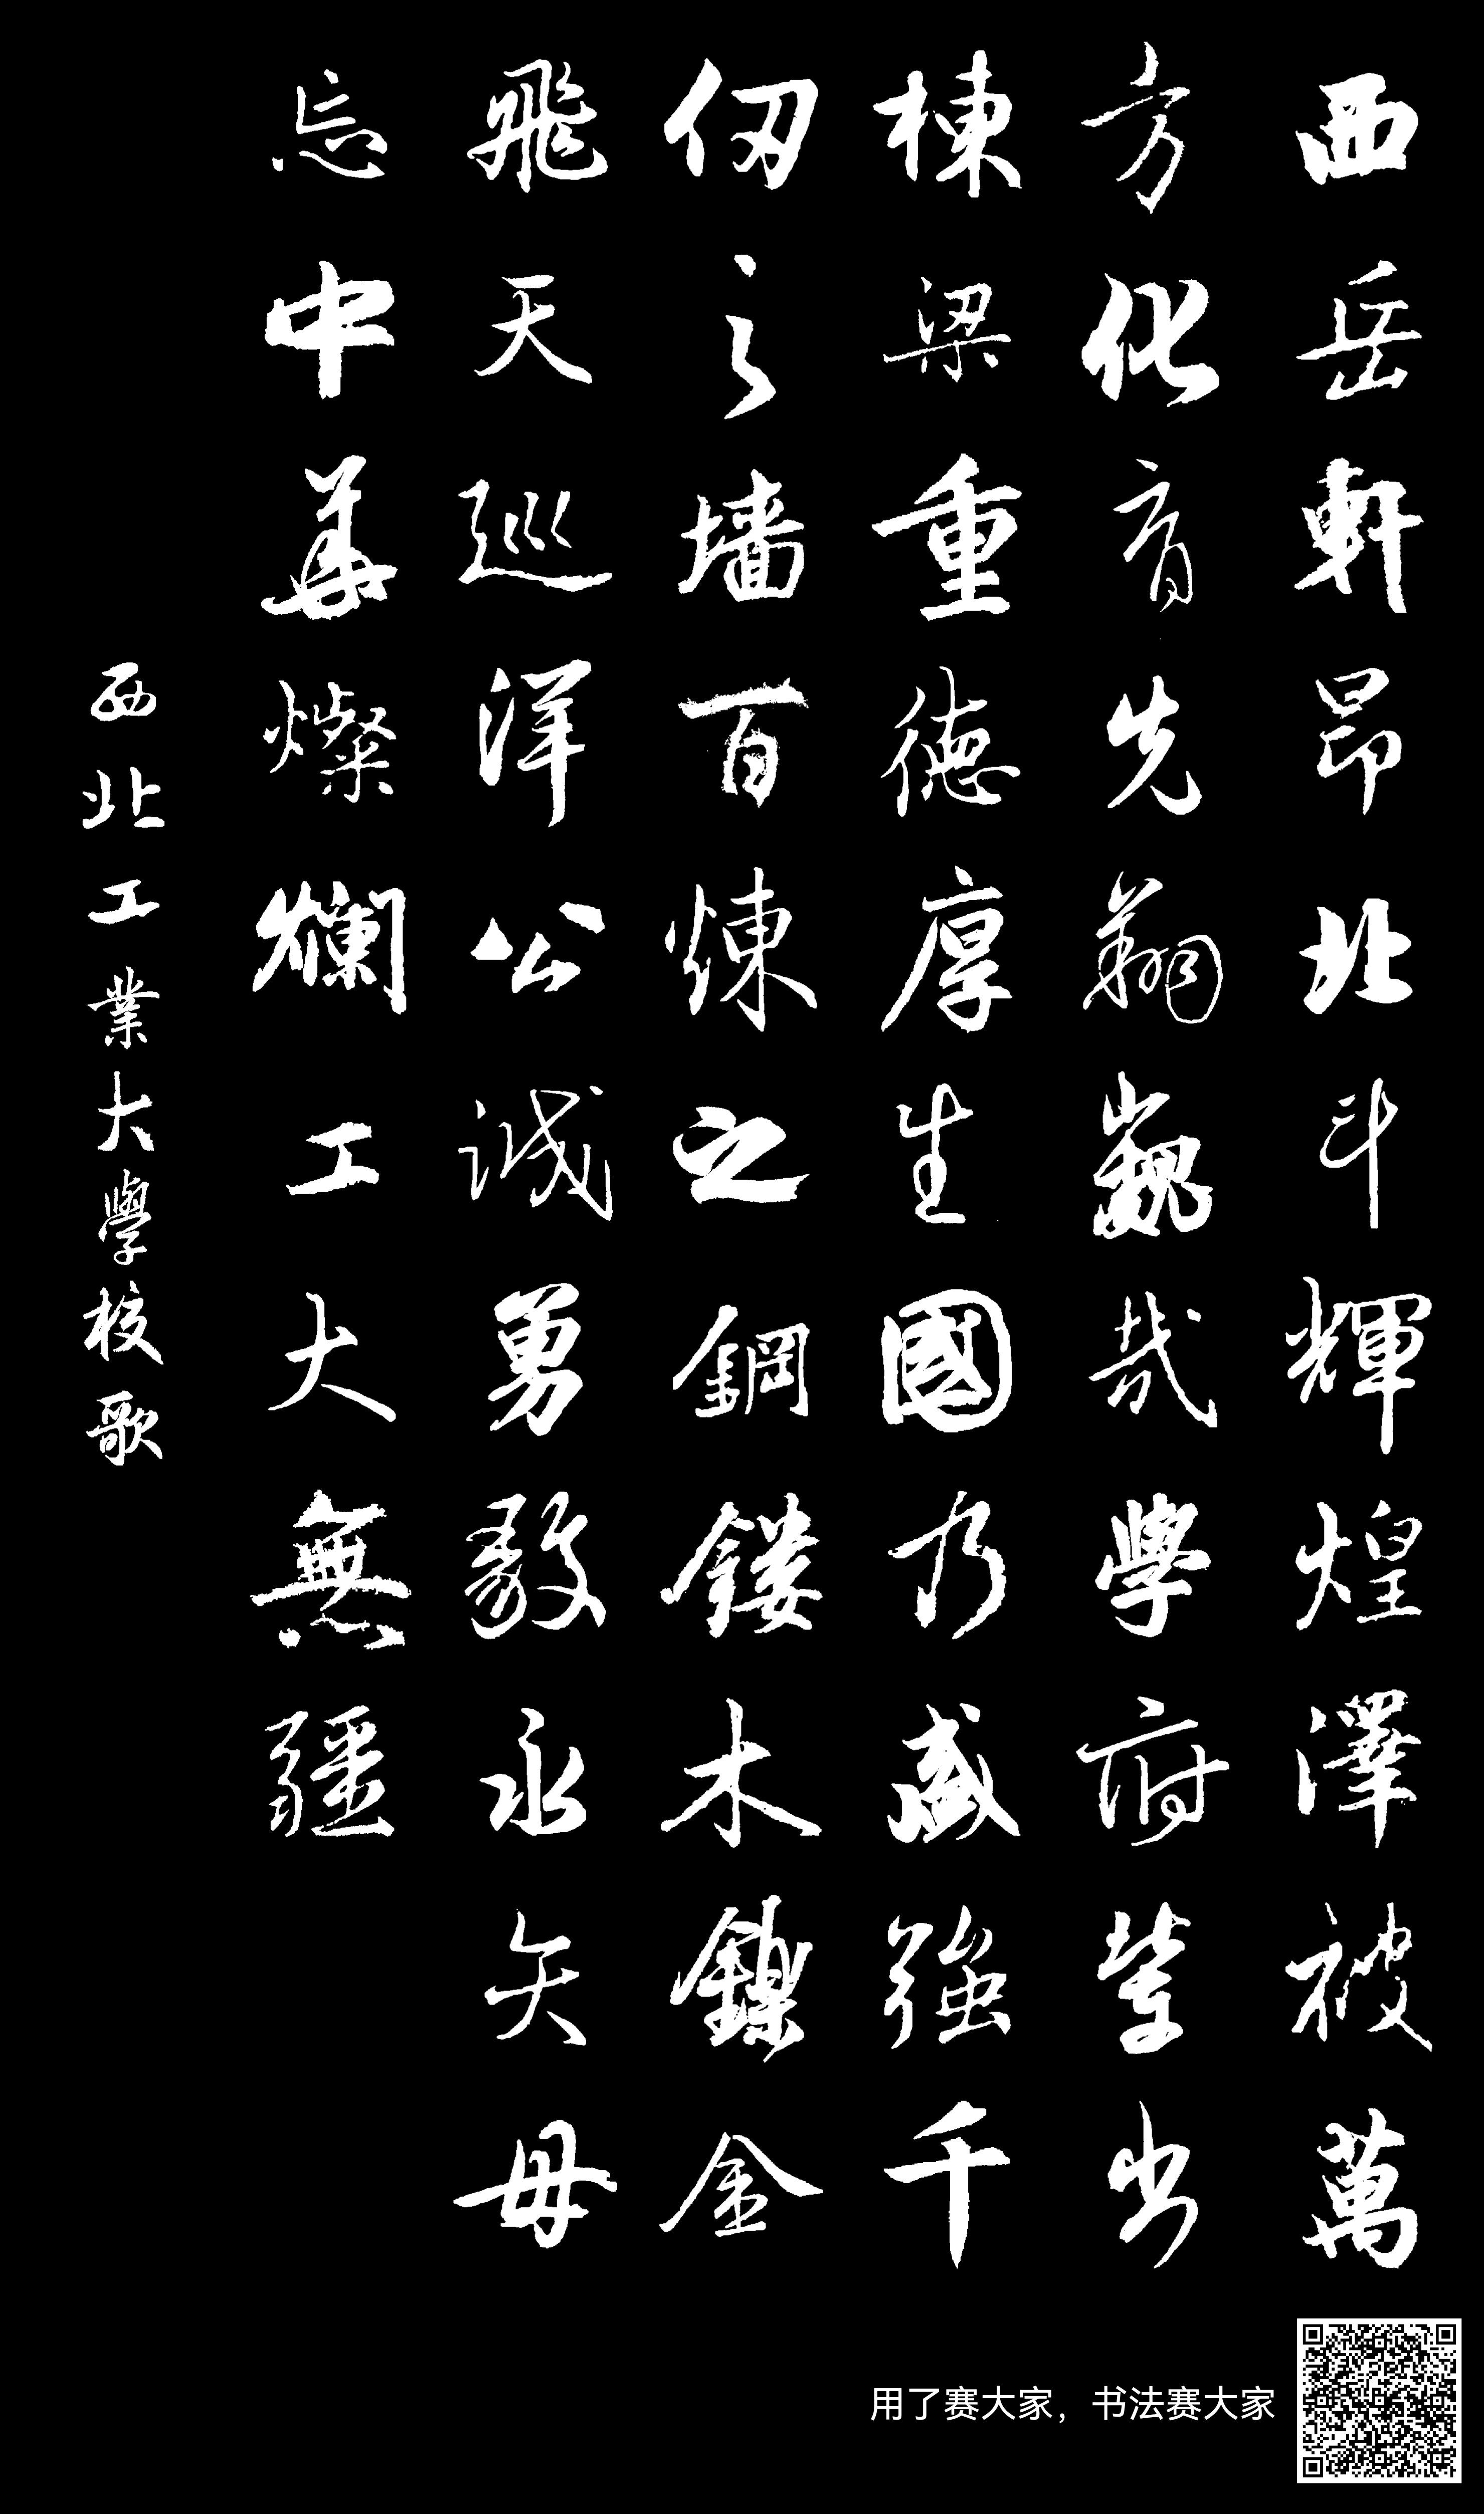 西岳軒昂北斗輝煌澤被萬
方化育先翔巍哉學府輩出
棟梁重德厚生國乃盛強千
仞之墙百煉之鋼鏤木鐫金
飛天巡洋公诚勇毅永矢毋
忘中華燦爛工大無疆
西北工業大學校歌
用了赛大家，书法赛大家